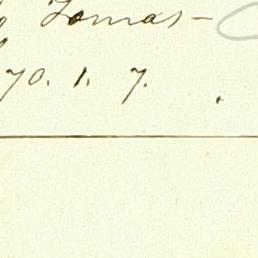 Tomas –
70. 1. 7.